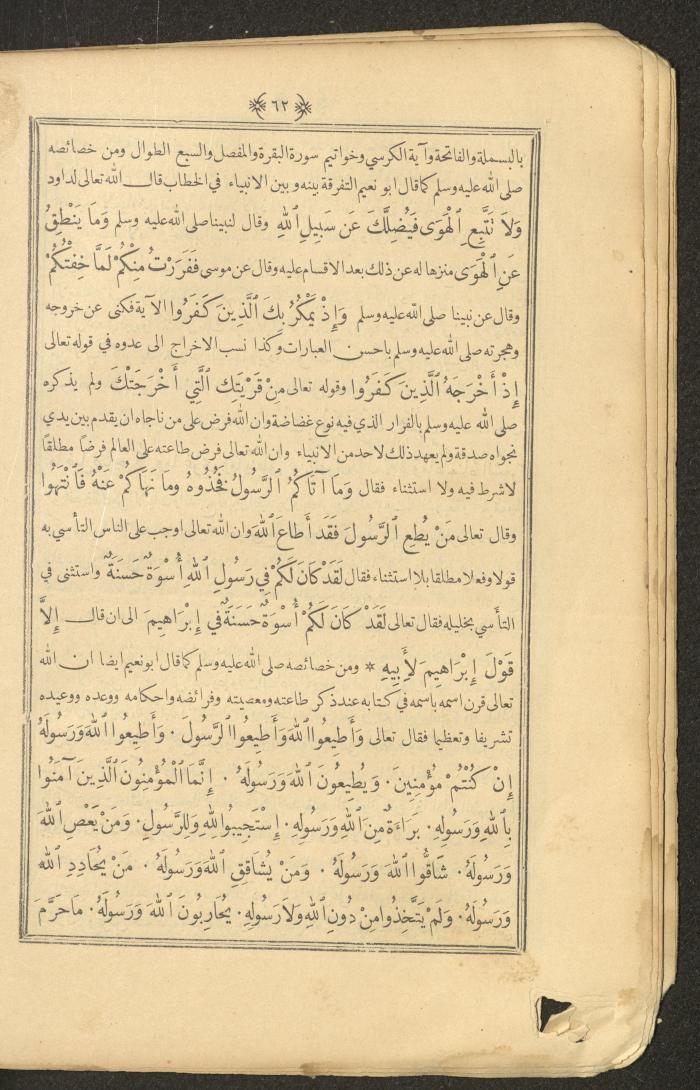 ٦٢
بالبسملة والفاتحة وآية الكرسي وخواتيم سورة البقرة والمفصل والسبع الطوال ومن خصائصه
صلى الله عليه وسلم كما قال ابو نعيم التفرقة بينه وبين الانبياء في الخطاب قال الله تعالى لداود
وَلاَ تَتَّبِعِ ٱلْهَوَى فَيُضِلَّكَ عَن سَبِيلِ ٱللهِ وقال لنبينا صلى الله عليه وسلم وَمَا يَنْطِقُ
عَنِ ٱلْهَوَى منزها له عن ذلك بعد الاقسام عليه وقال عن موسى فَفَرَرْتُ مِنْكُمْ لَمَّا خِفْتُكُمْ
وقال عن نبينا صلى الله عليه وسلم وَإِذْ يَمْكُرُ بِكَ ٱلَّذِينَ كَفَرُوا الآية فكنى عن خروجه
وهجرته صلى الله عليه وسلم باحسن العبارات وكذا نسب الاخراج الى عدوه في قوله تعالى
إِذْ أَخْرَجَهُ ٱلَّذِينَ كَفَرُوا وقوله تعالى مِنْ قَرْيَتِكَ ٱلَّتِي أَخْرَجَتْكَ ولم يذكره
صلى الله عليه وسلم بالفرار الذي فيه نوع غضاضة وان الله فرض على من ناجاه ان يقدم بين يدي
نجواه صدقة ولم يعهد ذلك لاحد من الانبياء وان الله تعالى فرض طاعته على العالم فرضًا مطلقًا
لا شرط فيه ولا استثناء فقال وَمَا آتَاكُمُ ٱلرَّسُولُ فَخُذُوهُ وَمَا نَهَاكُمْ عَنْهُ فَٱنْتَهُوا
وقال تعالى مَنْ يُطِعِ ٱلرَّسُولَ فَقَدْ أَطَاعَ ٱللهَ وان الله تعالى اوجب على الناس التأسي به
قولا وفعلا مطلقا بلا استثناء فقال لَقَدْ كَانَ لَكُمْ فِي رَسُولِ ٱللهِ أُسْوَةٌ حَسَنَةٌ واستثنى في
التأسي بخليله فقال تعالى لَقَدْ كَانَ لَكُمْ أُسْوَةٌ حَسَنَةٌ فِي إِبْرَاهِيمَ الى ان قال إِلاَّ
قَوْلَ إِبْرَاهِيمَ لِأَبِيهِ * ومن خصائصه صلى الله عليه وسلم كما قال ابو نعيم ايضا ان الله
تعالى قرن اسمه باسمه في كتابه عند ذكر طاعته ومعصيته وفرائضه واحكامه ووعده ووعيده
تشريفا وتعظيما فقال تعالى وَأَطِيعُوا ٱللهَ وَأَطِيعُوا ٱلرَّسُولَ . وَأَطِيعُوا ٱللهَ وَرَسُولَهُ
إِنْ كُنْتُمْ مُؤْمِنِينَ . وَيُطِيعُونَ ٱللهَ وَرَسُولَهُ . إِنَّمَا ٱلْمُؤْمِنُونَ ٱلَّذِينَ آمَنُوا
بِٱللهِ وَرَسُولِهِ . بَرَاءَةٌ مِنَ ٱللهِ وَرَسُولِهِ . إِسْتَجِيبُوا لِلهِ وَلِلرَّسُولِ . وَمَنْ يَعْصِ ٱللهَ
وَرَسُولَهُ . شَاقُّوا ٱللهَ وَرَسُولَهُ . وَمَنْ يُشَاقِقِ ٱللهَ وَرَسُولَهُ . مَنْ يُحَادِدِ ٱللهَ
وَرَسُولَهُ . وَلَمْ يَتَّخِذُوا مِنْ دُونِ ٱللهِ وَلاَ رَسُولِهِ . يُحَارِبُونَ ٱللهَ وَرَسُولَهُ . مَا حَرَّمَ